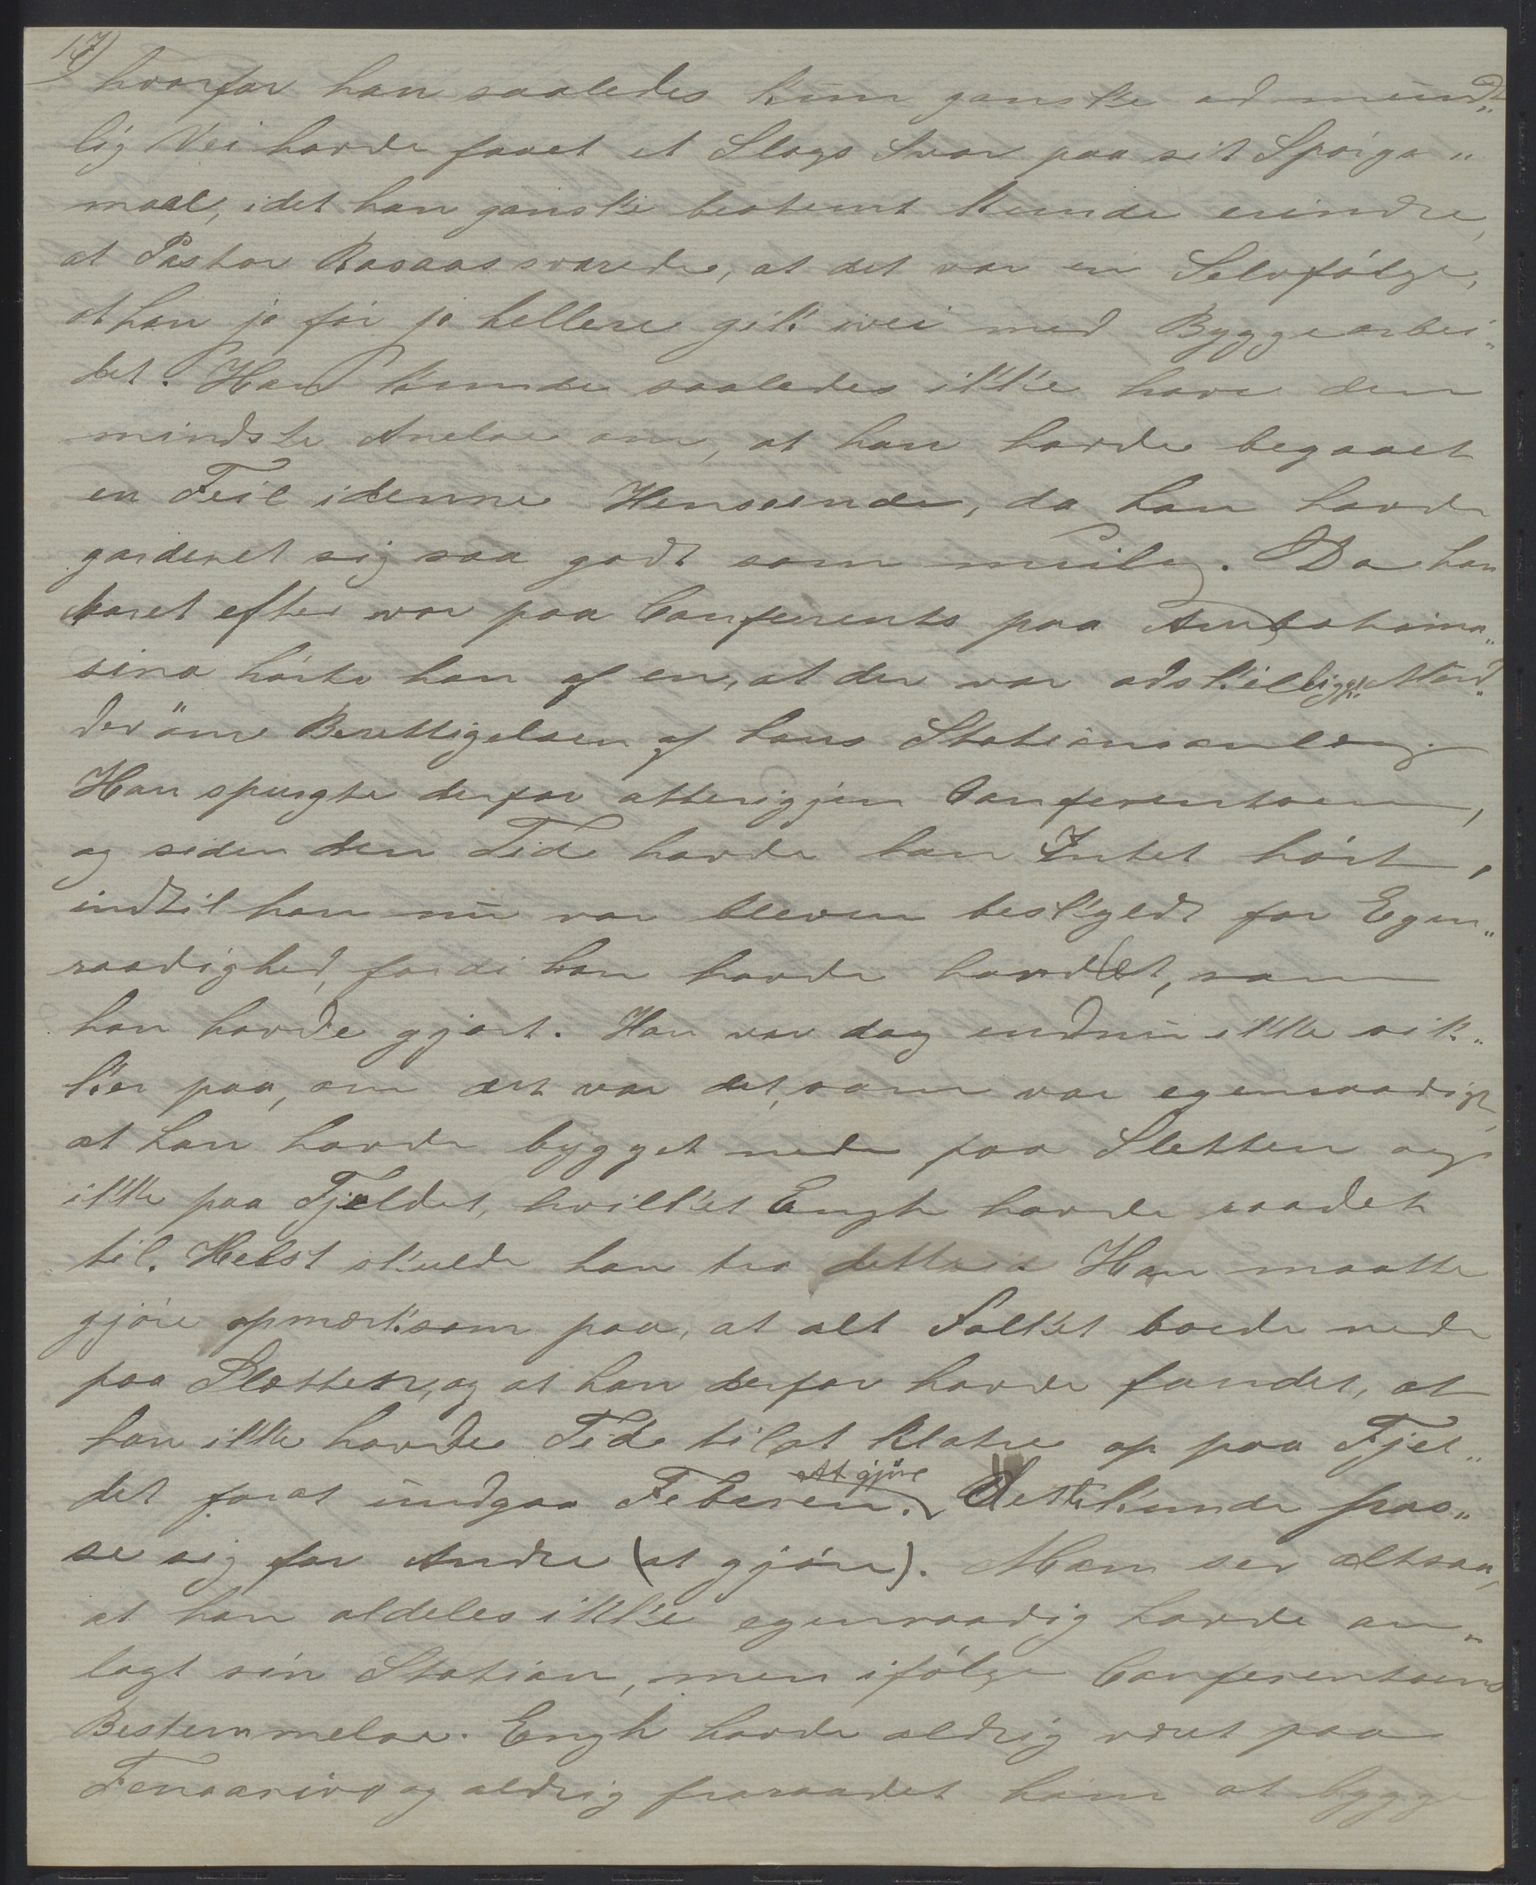 17)
hvorfor han saaledes kun ganske ad mund„
lig Vei havde faaet et Slags Svar paa sit Spörgs„
maal, idet han ganske bestemt kunde erindre,
at Pastor Rosaas svarede, at det var en Selvfölge,
at han jo för jo hellere gik ivei med Byggearbei„
det. Han kunde saaledes ikke have den
mindste Anelse om, at han havde begaaet
en Feil i denne Henseende, da han havde
garderet sig saa godt som muilig. Da han
Aaret efter var paa Conferents paa Ambatoina„
sina hörte han af en, at der var adskillige Mod„
der om Berettigelsen af hans Stationsanlæg.
Han spurgte derfor atterigjen Conferentsen,
og siden den Tid havde han Intet hört,
indtil han nu var bleven beskyldt for Egen„
raadighed, fordi han havde handlet, som
han havde gjort. Han var dog endnu ikke sik„
ker paa, om det var det, som var egenraadigt,
at han havde bygget nede paa Sletten og
ikke paa Fjeldet, hvilket Engh havde raadet
til. Helst skulde han tro dette. Han maatte
gjöre opmærksom paa, at alt Folket boede nede
paa Sletten, og at han derfor havde fundet, at
han ikke havde Tid til at klatre op paa Fjel„
det forat undgaa Feberen. At gjöre Dette kunde pas„
se sig for Andre (at gjöre). Man ser altsaa,
at han aldeles ikke egenraadig havde an„
lagt sin Station, men ifölge Conferentsens
Bestemmelse. Engh havde aldrig været paa
Fenoarivo og aldrig fraraadet ham at bygge